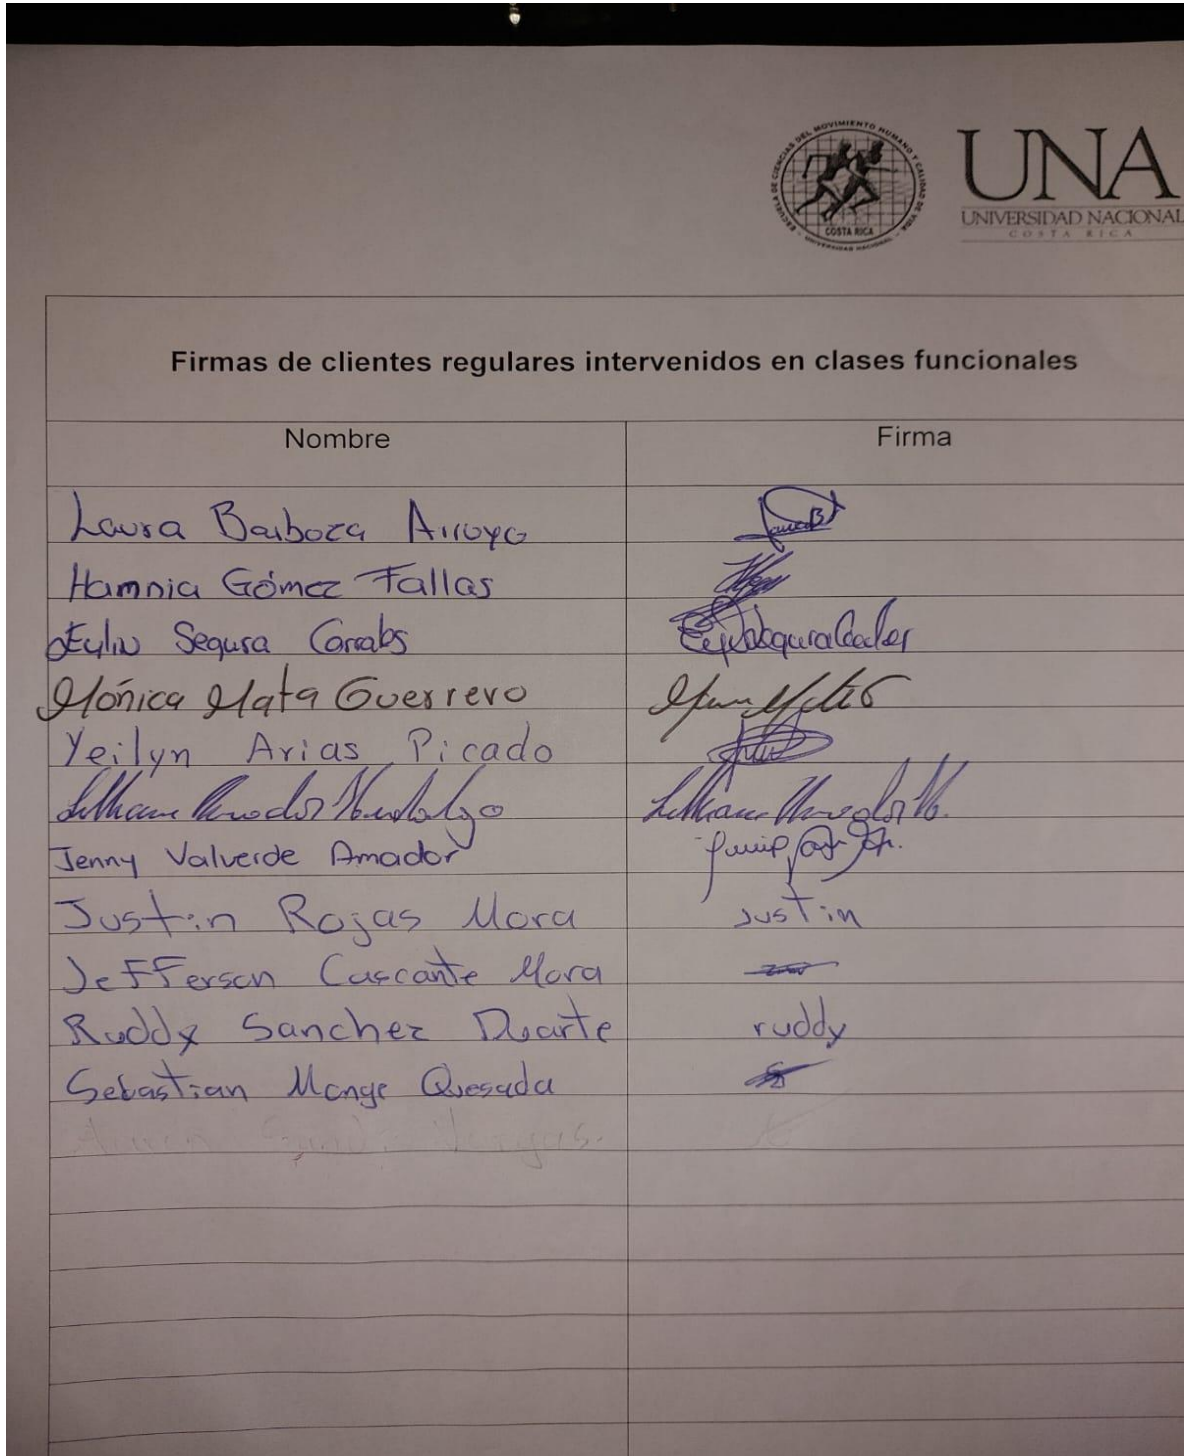 ESCUELA DE CIENCIAS DEL MOVIMIENTO HUMANO Y CALIDAD DE VIDA
COSTA RICA
UNIVERSIDAD NACIONAL
UNA
UNIVERSIDAD NACIONAL
COSTA RICA
Firmas de clientes regulares intervenidos en clases funcionales
Nombre Firma
Laura Barboza Arroyo
Hamnia Gómez Fallas
Segura
Mónica Mata Guerrero
Yeilyn Arias Picado
Jenny Valverde Amador
Justin Rojas Mora Justin
Jefferson Cascante Mora
Ruddy Sanchez Duarte ruddy
Sebastian Monge Quesada